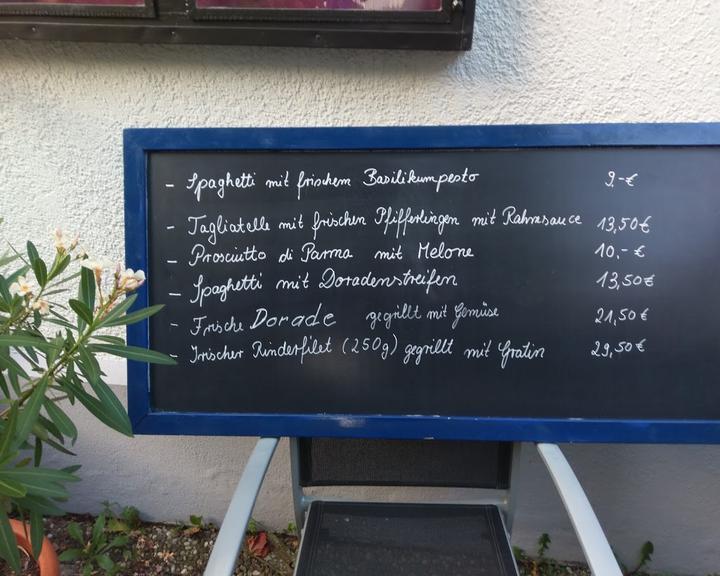 - Spaghetti mit frischem Basilikumpesto 9.-€
- Tagliatelle mit frischen Pfifferlingen mit Rahmsauce 13,50€
- Prosciutto di Parma mit Melone 10,-€
- Spaghetti mit Doradenstreifen 13,50€
- Frische Dorade gegrillt mit Gemüse 21,50€
- Irischer Rinderfilet (250g) gegrillt mit Gratin 29,50€